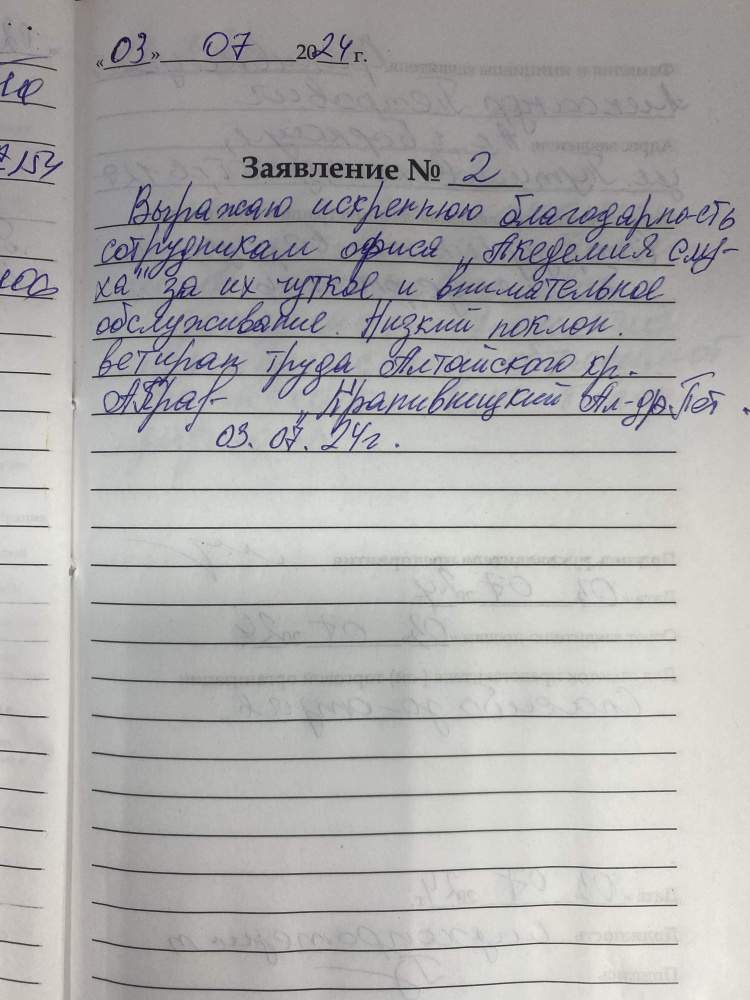 «03» 07 2024 г.
Заявление № 2
Выражаю искреннюю благодарность
сотрудникам офиса „Академия слу-
ха" за их чуткое и внимательное
обслуживание. Низкий поклон.
ветиран труда Алтайского кр.
Крапивницкий Ал-др. Пет.
03. 07. 24г.